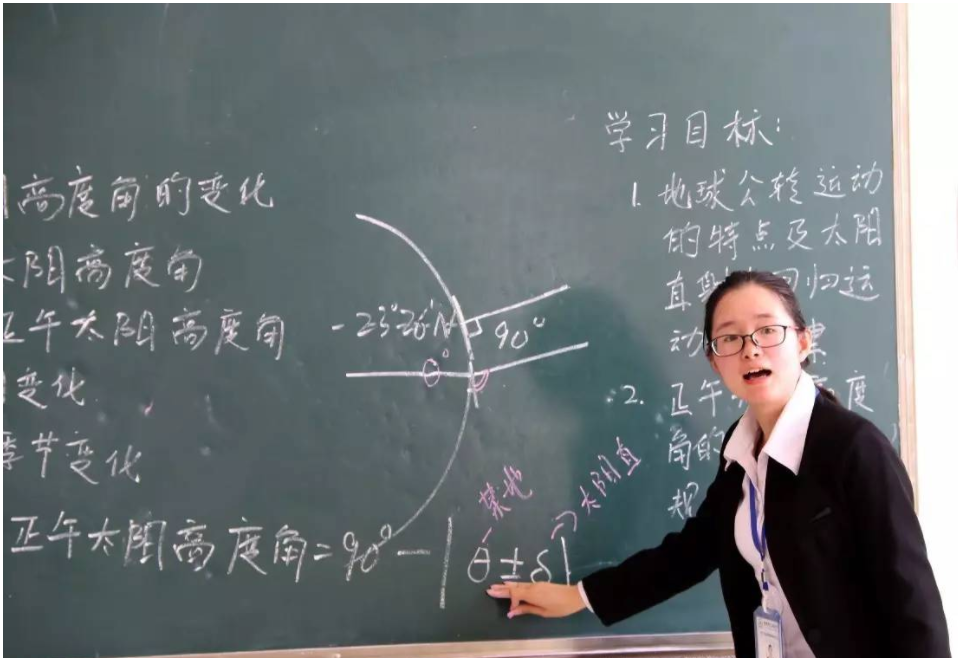 高度角的变化
太阳高度角
正午太阳高度角
变化
季节变化
正午太阳高度角=90°-|θ±δ|
某地
太阳直
23°26′N
90°
0°
学习目标:
1. 地球公转运动
的特点及太阳
直射 回归运
动
2. 正午 度
角的
规